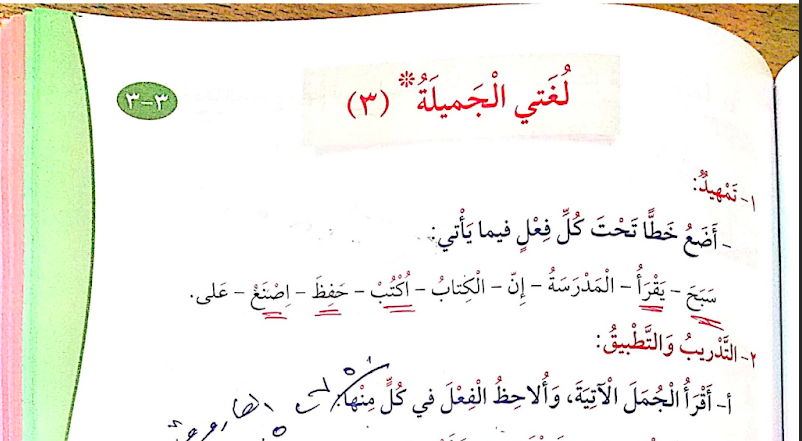 لُغَتي الْجَميلَةُ* (٣)
٣-٣
١- تَمْهيدٌ:
- أَضَعُ خَطًّا تَحْتَ كُلِّ فِعْلٍ فيما يَأْتي:
سَبَحَ - يَقْرَأُ - الْمَدْرَسَةُ - إِنَّ - الْكِتابُ - اُكْتُبْ - حَفِظَ - اِصْنَعْ - عَلى.
٢- التَّدْريبُ وَالتَّطْبيقُ:
أ- أَقْرَأُ الْجُمَلَ الْآتِيَةَ، وَأُلاحِظُ الْفِعْلَ في كُلٍّ مِنْها: